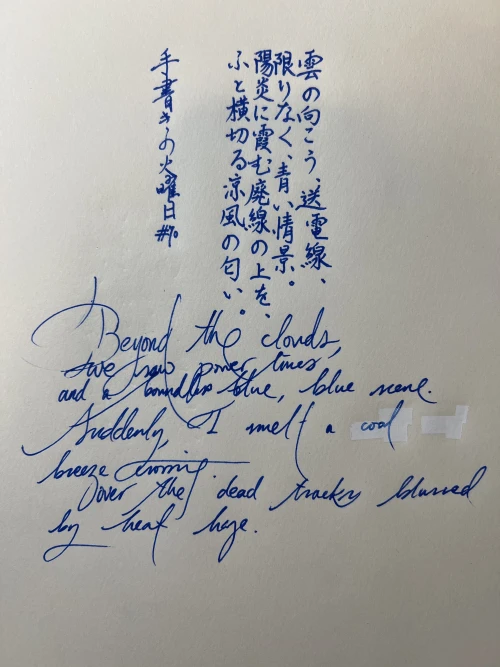 雲の向こう、送電線、
限りなく、青い情景。
陽炎に霞む廃線の上を、
ふと横切る涼風の匂い。
手書きの火曜日#70
Beyond the clouds,
we saw power lines,
and a boundless blue, blue scene.
Suddenly, I smelt a cool
breeze
over the dead tracks blurred
by heat haze.